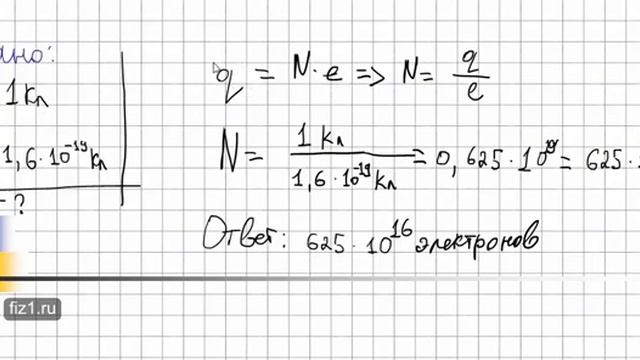 ано:
1 Кл
1,6·10⁻¹⁹ Кл
- ?
q = N·e => N = q/e
N = 1 Кл / 1,6·10⁻¹⁹ Кл = 0,625·10¹⁹ = 625·
Ответ: 625·10¹⁶ электронов
fiz1.ru